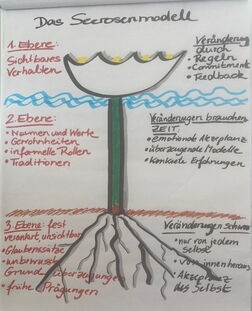 Das Seerosenmodell
1. Ebene:
Sichtbares
Verhalten
Veränderung
durch
• Regeln
• Commitment
• Feedback
2. Ebene:
• Normen und Werte
• Gewohnheiten
• informelle Rollen
• Traditionen
Veränderungen brauchen
ZEIT
• emotionale Akzeptanz
• überzeugende Modelle
• Erfahrungen
3. Ebene: fest
verankert, unsichtbar
• Glaubenssätze
• unbewusste
Grundüberzeugungen
• frühe Prägungen
Veränderungen schwer
• nur von jedem
selbst
• von innen heraus
• Akzeptanz
des Selbst